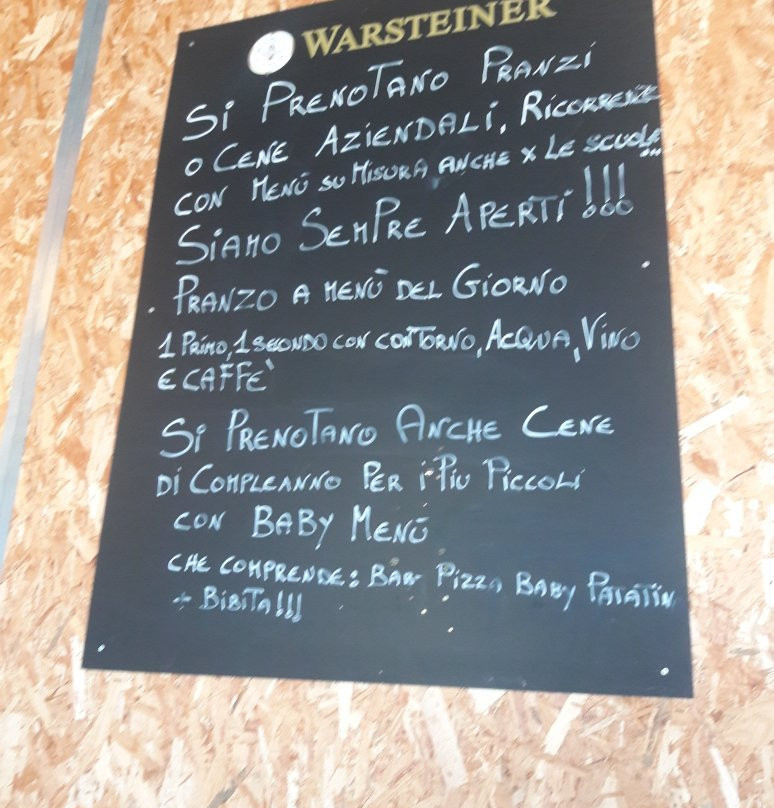 WARSTEINER
Si PRENOTANO PRANZi
O CENE AZIENDALi, RICORRENZE
CON MENÙ SU MISURA ANCHE X LE SCUOLE...
SIAMO SEMPRE APERTi!!!
PRANZO A MENÙ DEL GIORNO
1 PRIMO, 1 SECONDO CON CONTORNO, ACQUA, VINO
E CAFFE'
Si PRENOTANO ANCHE CENE
Di COMPLEANNO PER i PIU PICCOLi
CON BABY MENÙ
CHE COMPRENDE: PIZZA BABY PATATIN
+ BIBITA!!!